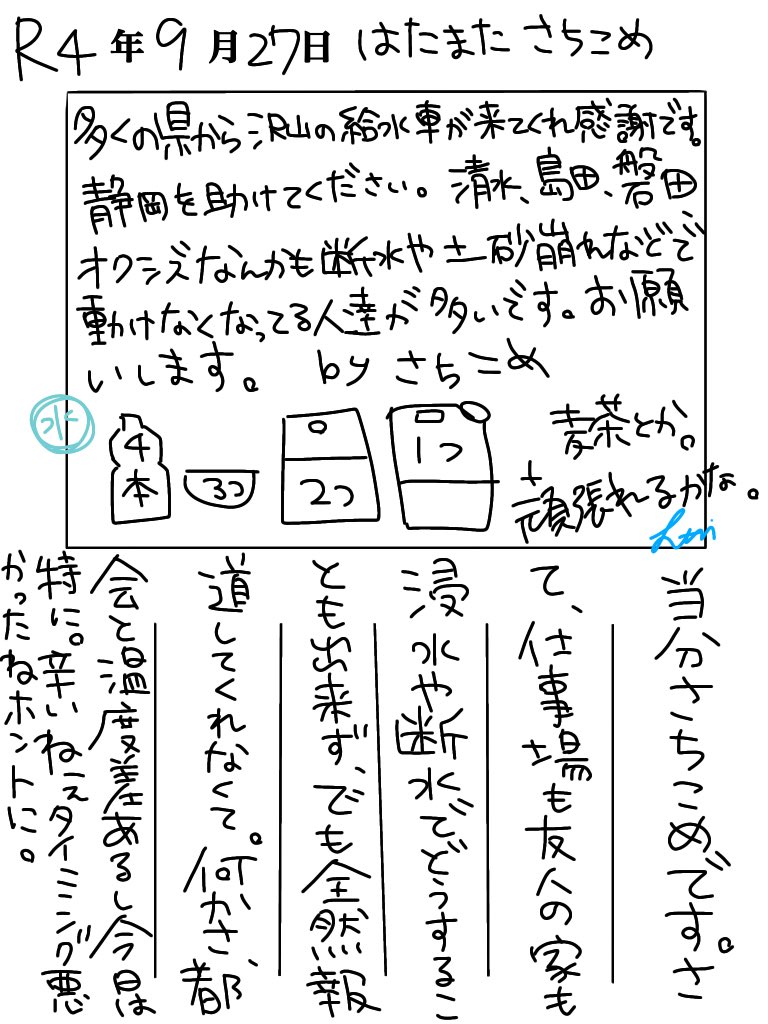 R4年9月27日 はたまた さちこめ
多くの県から沢山の給水車が来てくれ感謝です。
静岡を助けてください。清水、島田、磐田
オクシズなんかも断水や土砂崩れなどで
動けなくなってる人達が多いです。お願
いします。 by さちこめ
水
4本
3つ
2つ
1つ
麦茶とか。
頑張れるかな。
当分さちこめです。さ
て、仕事場も友人の家も
浸水や断水でどうするこ
とも出来ず、でも全然報
道してくれなくて。何かさ、都
会と温度差あるし今日は
特に。辛いねぇタイミング悪
かったねホントに。